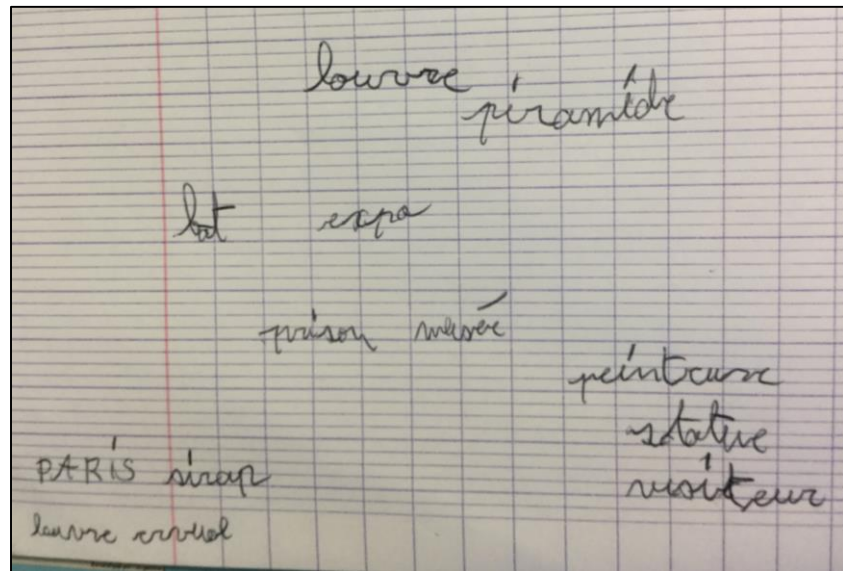 louvre
piramide
bat expo
prison musée
peinture
statue
visiteur
PARIS sirap
louvre ervuol